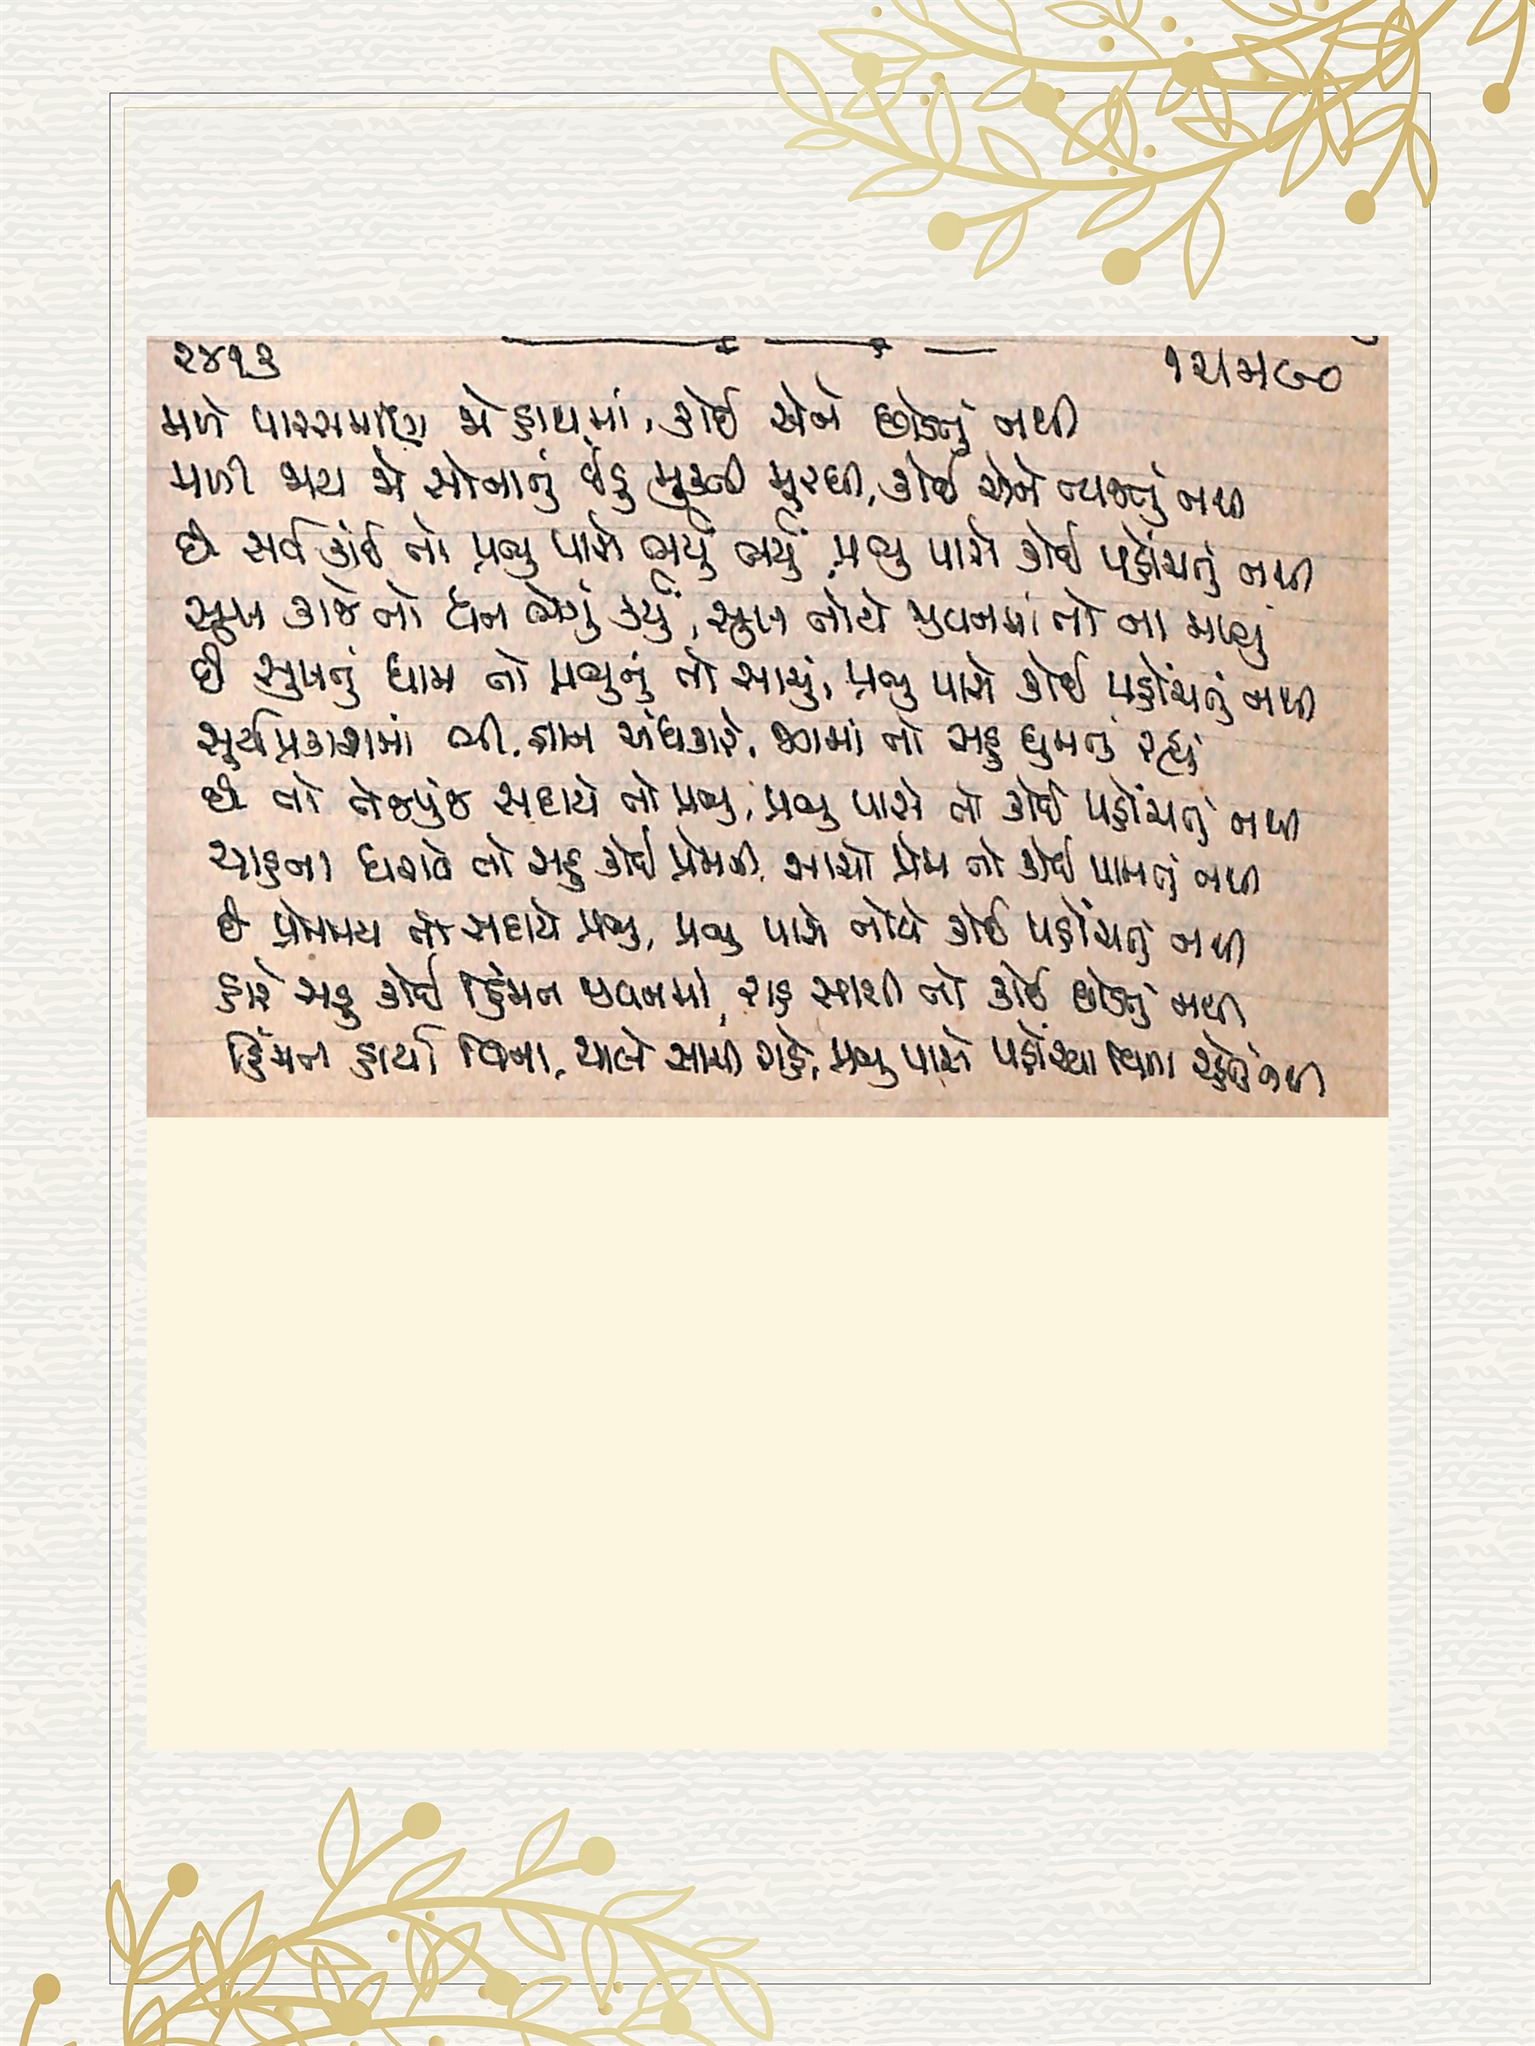 ૨૪૧૩
મળે પારસમણિ જો હાથમાં, કોઈ એને છોડતું નથી
મળી જાય જો સોનાનું ઈંડુ મૂકતી મૂરઘી, કોઈ એને ત્યજતું નથી
છે સર્વ કાંઈ તો પ્રભુ પાસે ભર્યું ભર્યું, પ્રભુ પાસે કોઈ પહોંચતું નથી
સુખ કાજે તો ધન ભેગું કર્યું, સુખ તોયે જીવનમાં તો ના મળ્યું
છે સુખનું ધામ તો પ્રભુનું તો સાચું, પ્રભુ પાસે કોઈ પહોંચતું નથી
સૂર્યપ્રકાશમાં ભી, જ્ઞાન અંધકારે, જગમાં તો સહુ ઘુમતું રહ્યું
છે તો તેજપુંજ સદાયે તો પ્રભુ, પ્રભુ પાસે તો કોઈ પહોંચતું નથી
ચાહના ધરાવે તો સહુ કોઈ પ્રેમની, સાચો પ્રેમ તો કોઈ પામતું નથી
છે પ્રેમમય તો સદાયે પ્રભુ, પ્રભુ પાસે તોયે કોઈ પહોંચતું નથી
હારે સહુ કોઈ હિંમત જીવનમાં, રાહ સાચી તો કોઈ છોડતું નથી
હિંમત હાર્યા વિના, ચાલે સાચી રાહે, પ્રભુ પાસે પહોંચ્યા વિના રહેતું નથી